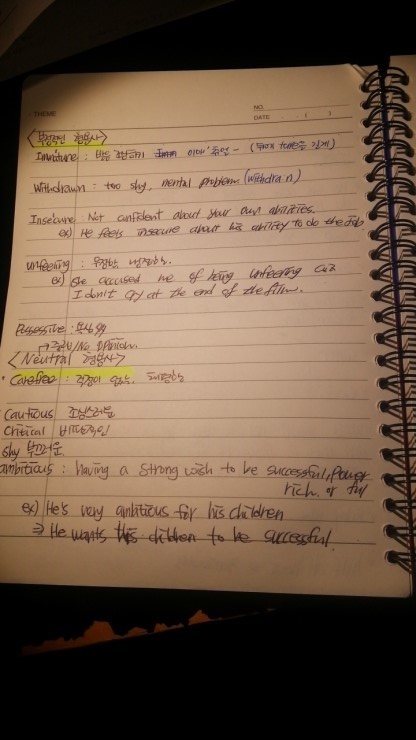 THEME
NO.
DATE . . ( )
<부정적인 형용사>
Immature :
Withdrawn : too shy, mental problem (withdra n)
Insecure Not confident about your own abilities.
ex) He feels insecure about his ability to do the job
unfeeling : 무정한, 냉정한.
ex) She accused me of being unfeeling cuz
I don't cry at the end of the film.
Possessive :
No opinion.
<Neutral 형용사>
Carefree : 걱정이 없는,
Cautious 조심스러운
Critical 비판적인
shy 부끄러운
ambitious : having a strong wish to be successful, power
rich. or ful
ex) He's very ambitious for his children
⇒ He wants his children to be successful.